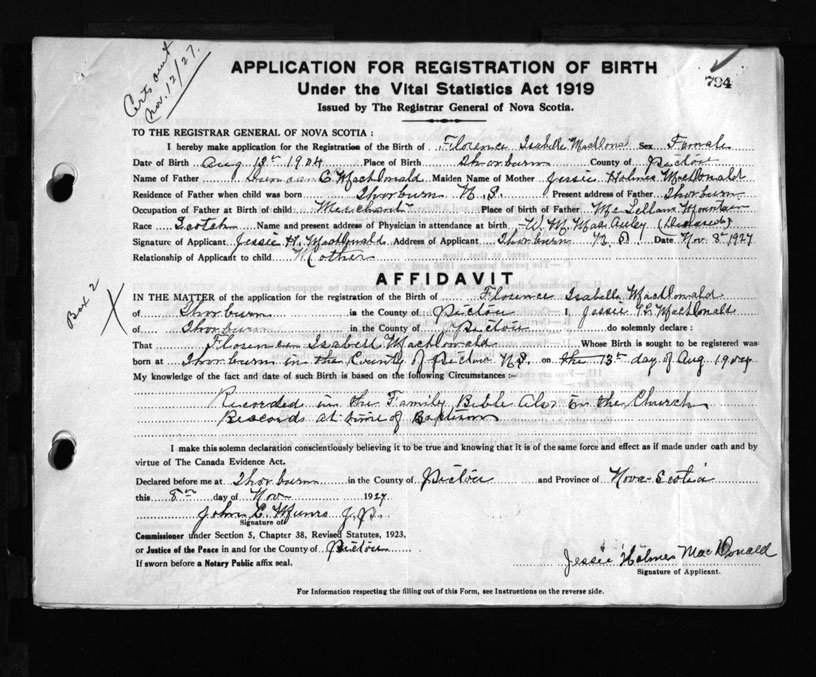 Certs out
Nov. 12/27.
APPLICATION FOR REGISTRATION OF BIRTH
Under the Vital Statistics Act 1919
Issued by The Registrar General of Nova Scotia.
794
TO THE REGISTRAR GENERAL OF NOVA SCOTIA :
I hereby make application for the Registration of the Birth of Florence Isabelle MacDonald Sex Female
Date of Birth Aug 13th 1904 Place of Birth Thorburn County of Pictou
Name of Father Duncan C MacDonald Maiden Name of Mother Jessie Holmes MacDonald
Residence of Father when child was born Thorburn N.S. Present address of Father Thorburn
Occupation of Father at Birth of child Merchant Place of birth of Father McLellans Mountain
Race Scotch Name and present address of Physician in attendance at birth W. M. MacAuley (Deceased)
Signature of Applicant Jessie H. MacDonald Address of Applicant Thorburn N.S. Date Nov 8th 1927
Relationship of Applicant to child Mother
AFFIDAVIT
Box 2
X
IN THE MATTER of the application for the registration of the Birth of Florence Isabella MacDonald
of Thorburn in the County of Pictou I, Jessie H. MacDonald
of Thorburn in the County of Pictou do solemnly declare :
That Florence Isabell MacDonald Whose Birth is sought to be registered was
born at Thorburn in the County of Pictou N.S. on the 13th day of Aug 1904
My knowledge of the fact and date of such Birth is based on the following Circumstances :-
Recorded in the Family Bible Also in the Church
Records at time of Baptism
I make this solemn declaration conscientiously believing it to be true and knowing that it is of the same force and effect as if made under oath and by
virtue of The Canada Evidence Act.
Declared before me at Thorburn in the County of Pictou and Province of Nova Scotia
this 8th day of Nov 1927
John C. Munro J.P.
Signature of
Commissioner under Section 5, Chapter 38, Revised Statutes, 1923,
or Justice of the Peace in and for the County of Pictou
If sworn before a Notary Public affix seal.
Jessie Holmes MacDonald
Signature of Applicant.
For Information respecting the filling out of this Form, see Instructions on the reverse side.